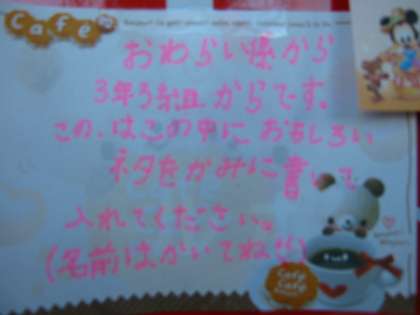 Cafe
おわらい係から
3年3組からです。
この、はこの中に おもしろい
ネタをかみに書いて
入れてください。
(名前はかいてね!!)